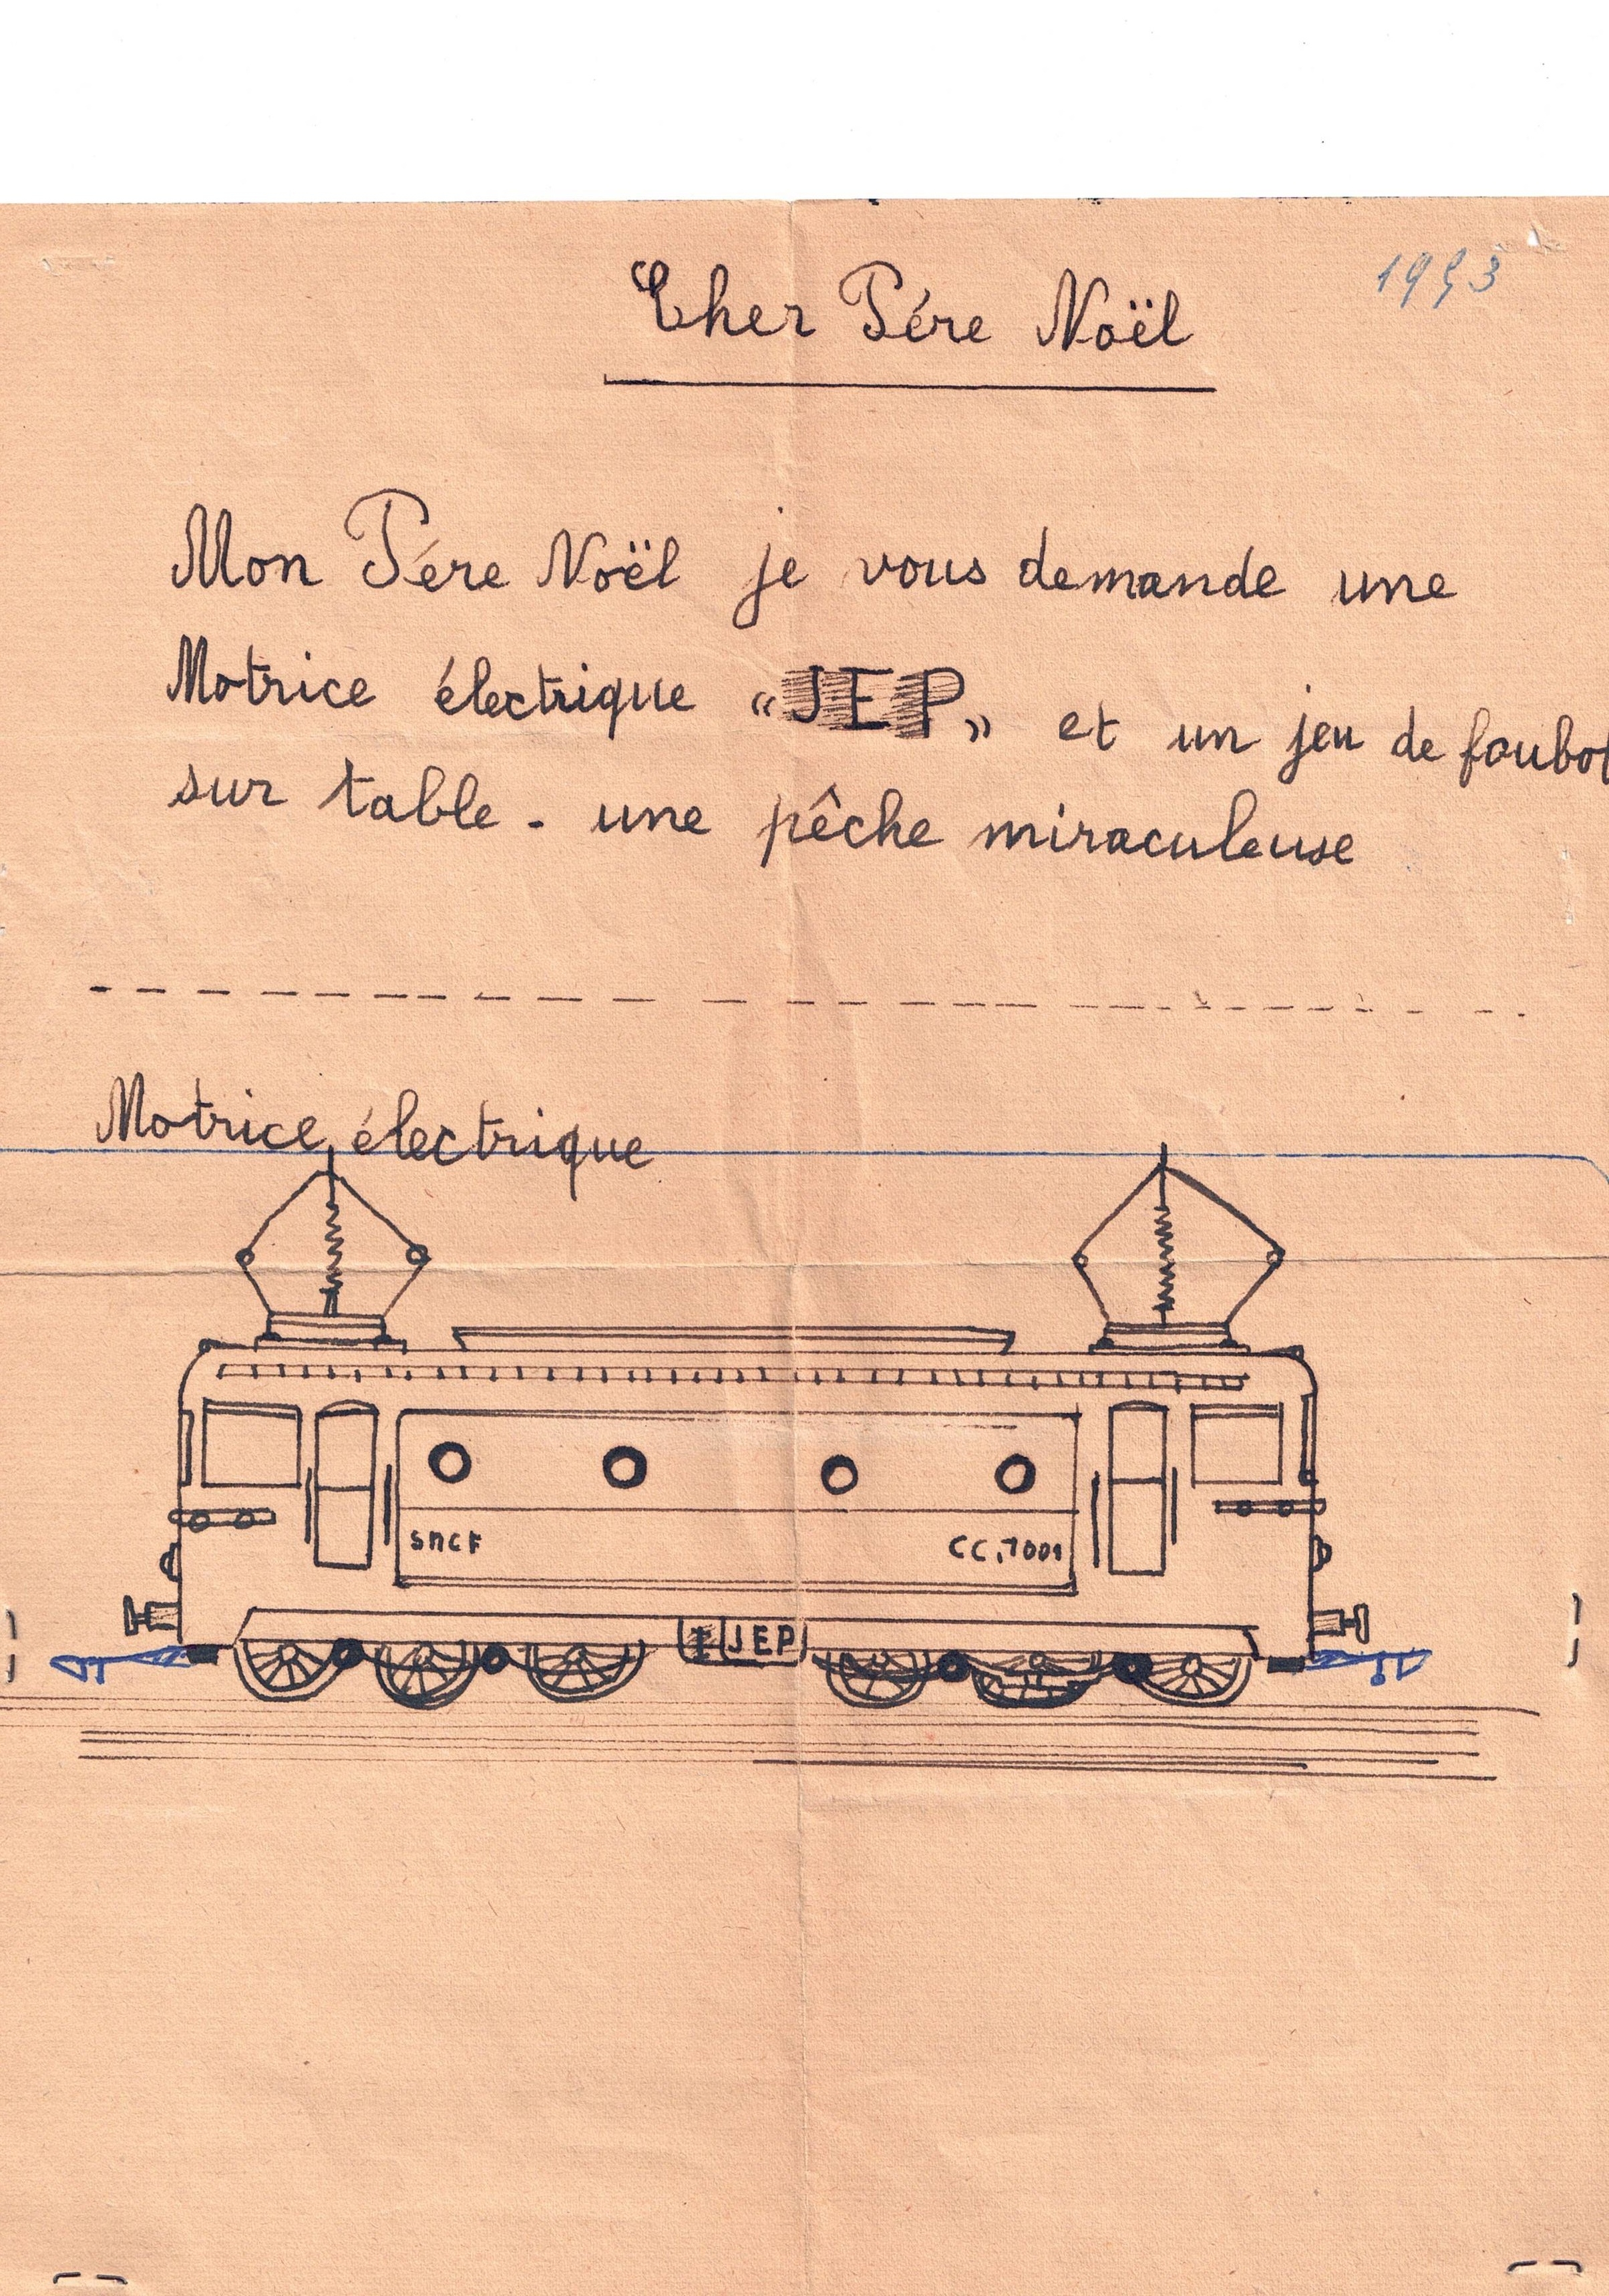 1953
Cher Pére Noël
Mon Pére Noël je vous demande une
Motrice électrique «JEP» et un jeu de foubot
sur table - une pêche miraculeuse
Motrice électrique
SNCF CC.7001
JEP